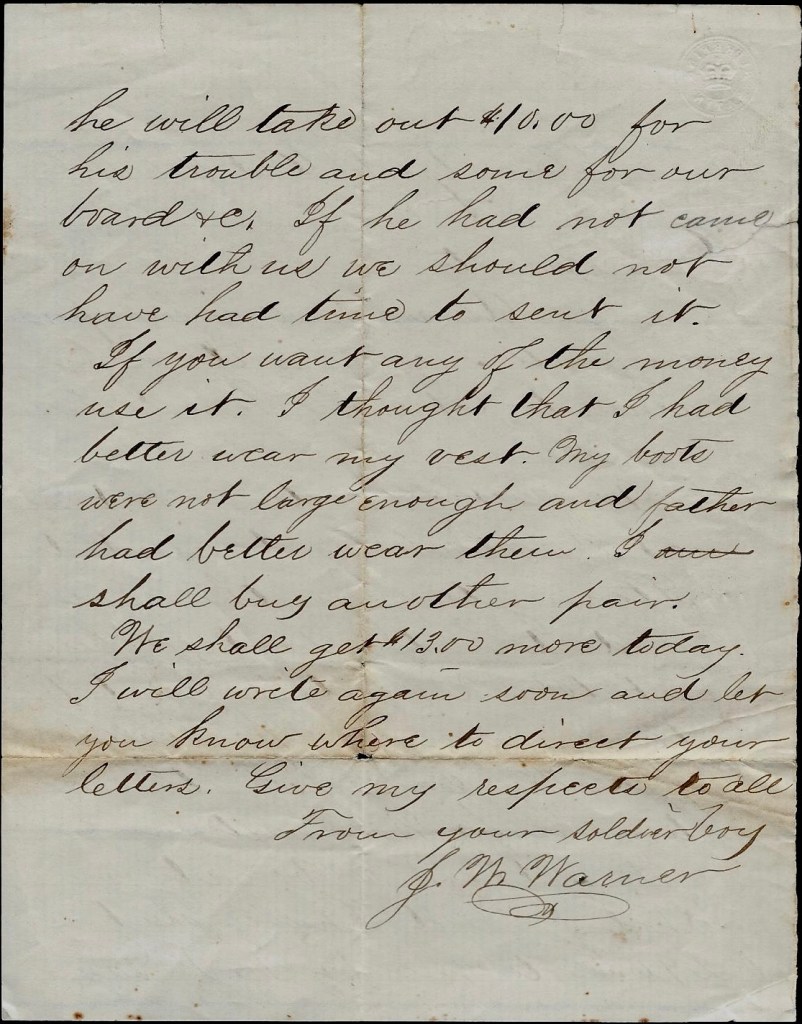 he will take out $10.00 for
his trouble and some for our
board &c. If he had not came
on with us we should not
have had time to sent it.
If you want any of the money
use it. I thought that I had
better wear my vest. My boots
were not large enough and father
had better wear them. I am
shall buy another pair.
We shall get $13.00 more today.
I will write again soon and let
you know where to direct your
letters. Give my respects to all
From your soldier boy
J. W. Warner